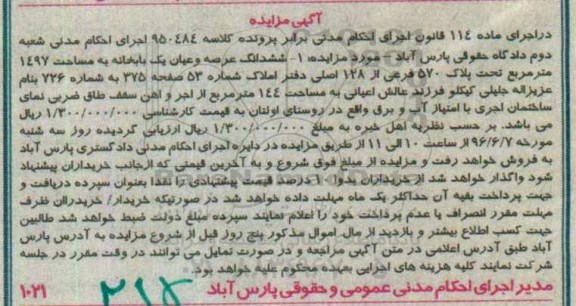 آگهی مزایده
دراجرای ماده ۱۱۴ قانون اجرای احکام مدنی برابر پرونده کلاسه ۹۵۰۴۸۴ اجرای احکام مدنی شعبه
دوم دادگاه حقوقی پارس آباد - مورد مزایده: ۱- ششدانگ عرصه وعیان یک بابخانه به مساحت ۱۴۹۷
مترمربع تحت پلاک ۵۷۰ فرعی از ۱۲۸ اصلی دفتر املاک شماره ۵۳ صفحه ۳۷۵ به شماره ۷۳۶ بنام
عزیزاله جلیلی کیکلو فرزند عالش اعیانی به مساحت ۱۴۴ مترمربع از اجر و اهن سقف طاق ضربی نمای
ساختمان اجری با امتیاز آب و برق واقع در روستای اولتان به قیمت کارشناسی ۱/۳۰۰/۰۰۰/۰۰۰ ریال
می باشد. بر حسب نظریه اهل خبره به مبلغ ۱/۳۰۰/۰۰۰/۰۰۰ ریال ارزیابی گردیده روز سه شنبه
مورخه ۹۶/۶/۷ از ساعت ۱۰ الی ۱۱ از طریق مزایده در دایره اجرای احکام مدنی دادگستری پارس آباد
به فروش خواهد رفت و مزایده از مبلغ فوق شروع و به آخرین قیمتی که ازجانب خریداران پیشنهاد
شود واگذار خواهد شد از خریداران بدوا ۱۰ درصد قیمت پیشنهادی را نقدا بعنوان سپرده دریافت و
جهت پرداخت بقیه آن حداکثر یک ماه مهلت داده خواهد شد در صورتیکه خریدار/ خریداران ظرف
مهلت مقرر انصراف یا عدم پرداخت خود را اعلام نمایند سپرده مبلغ دولت ضبط خواهد شد طالبین
جهت کسب اطلاع بیشتر و بازدید از مال اموال مذکور پنج روز قبل از شروع مزایده به آدرس پارس
آباد طبق آدرس اعلامی در متن آگهی مراجعه و در صورت تمایل می توانند در وقت مقرر در جلسه
شرکت نمایند کلیه هزینه های اجرایی بعهده محکوم علیه خواهد بود.
مدیر اجرای احکام مدنی عمومی و حقوقی پارس آباد ۱۰۲۱